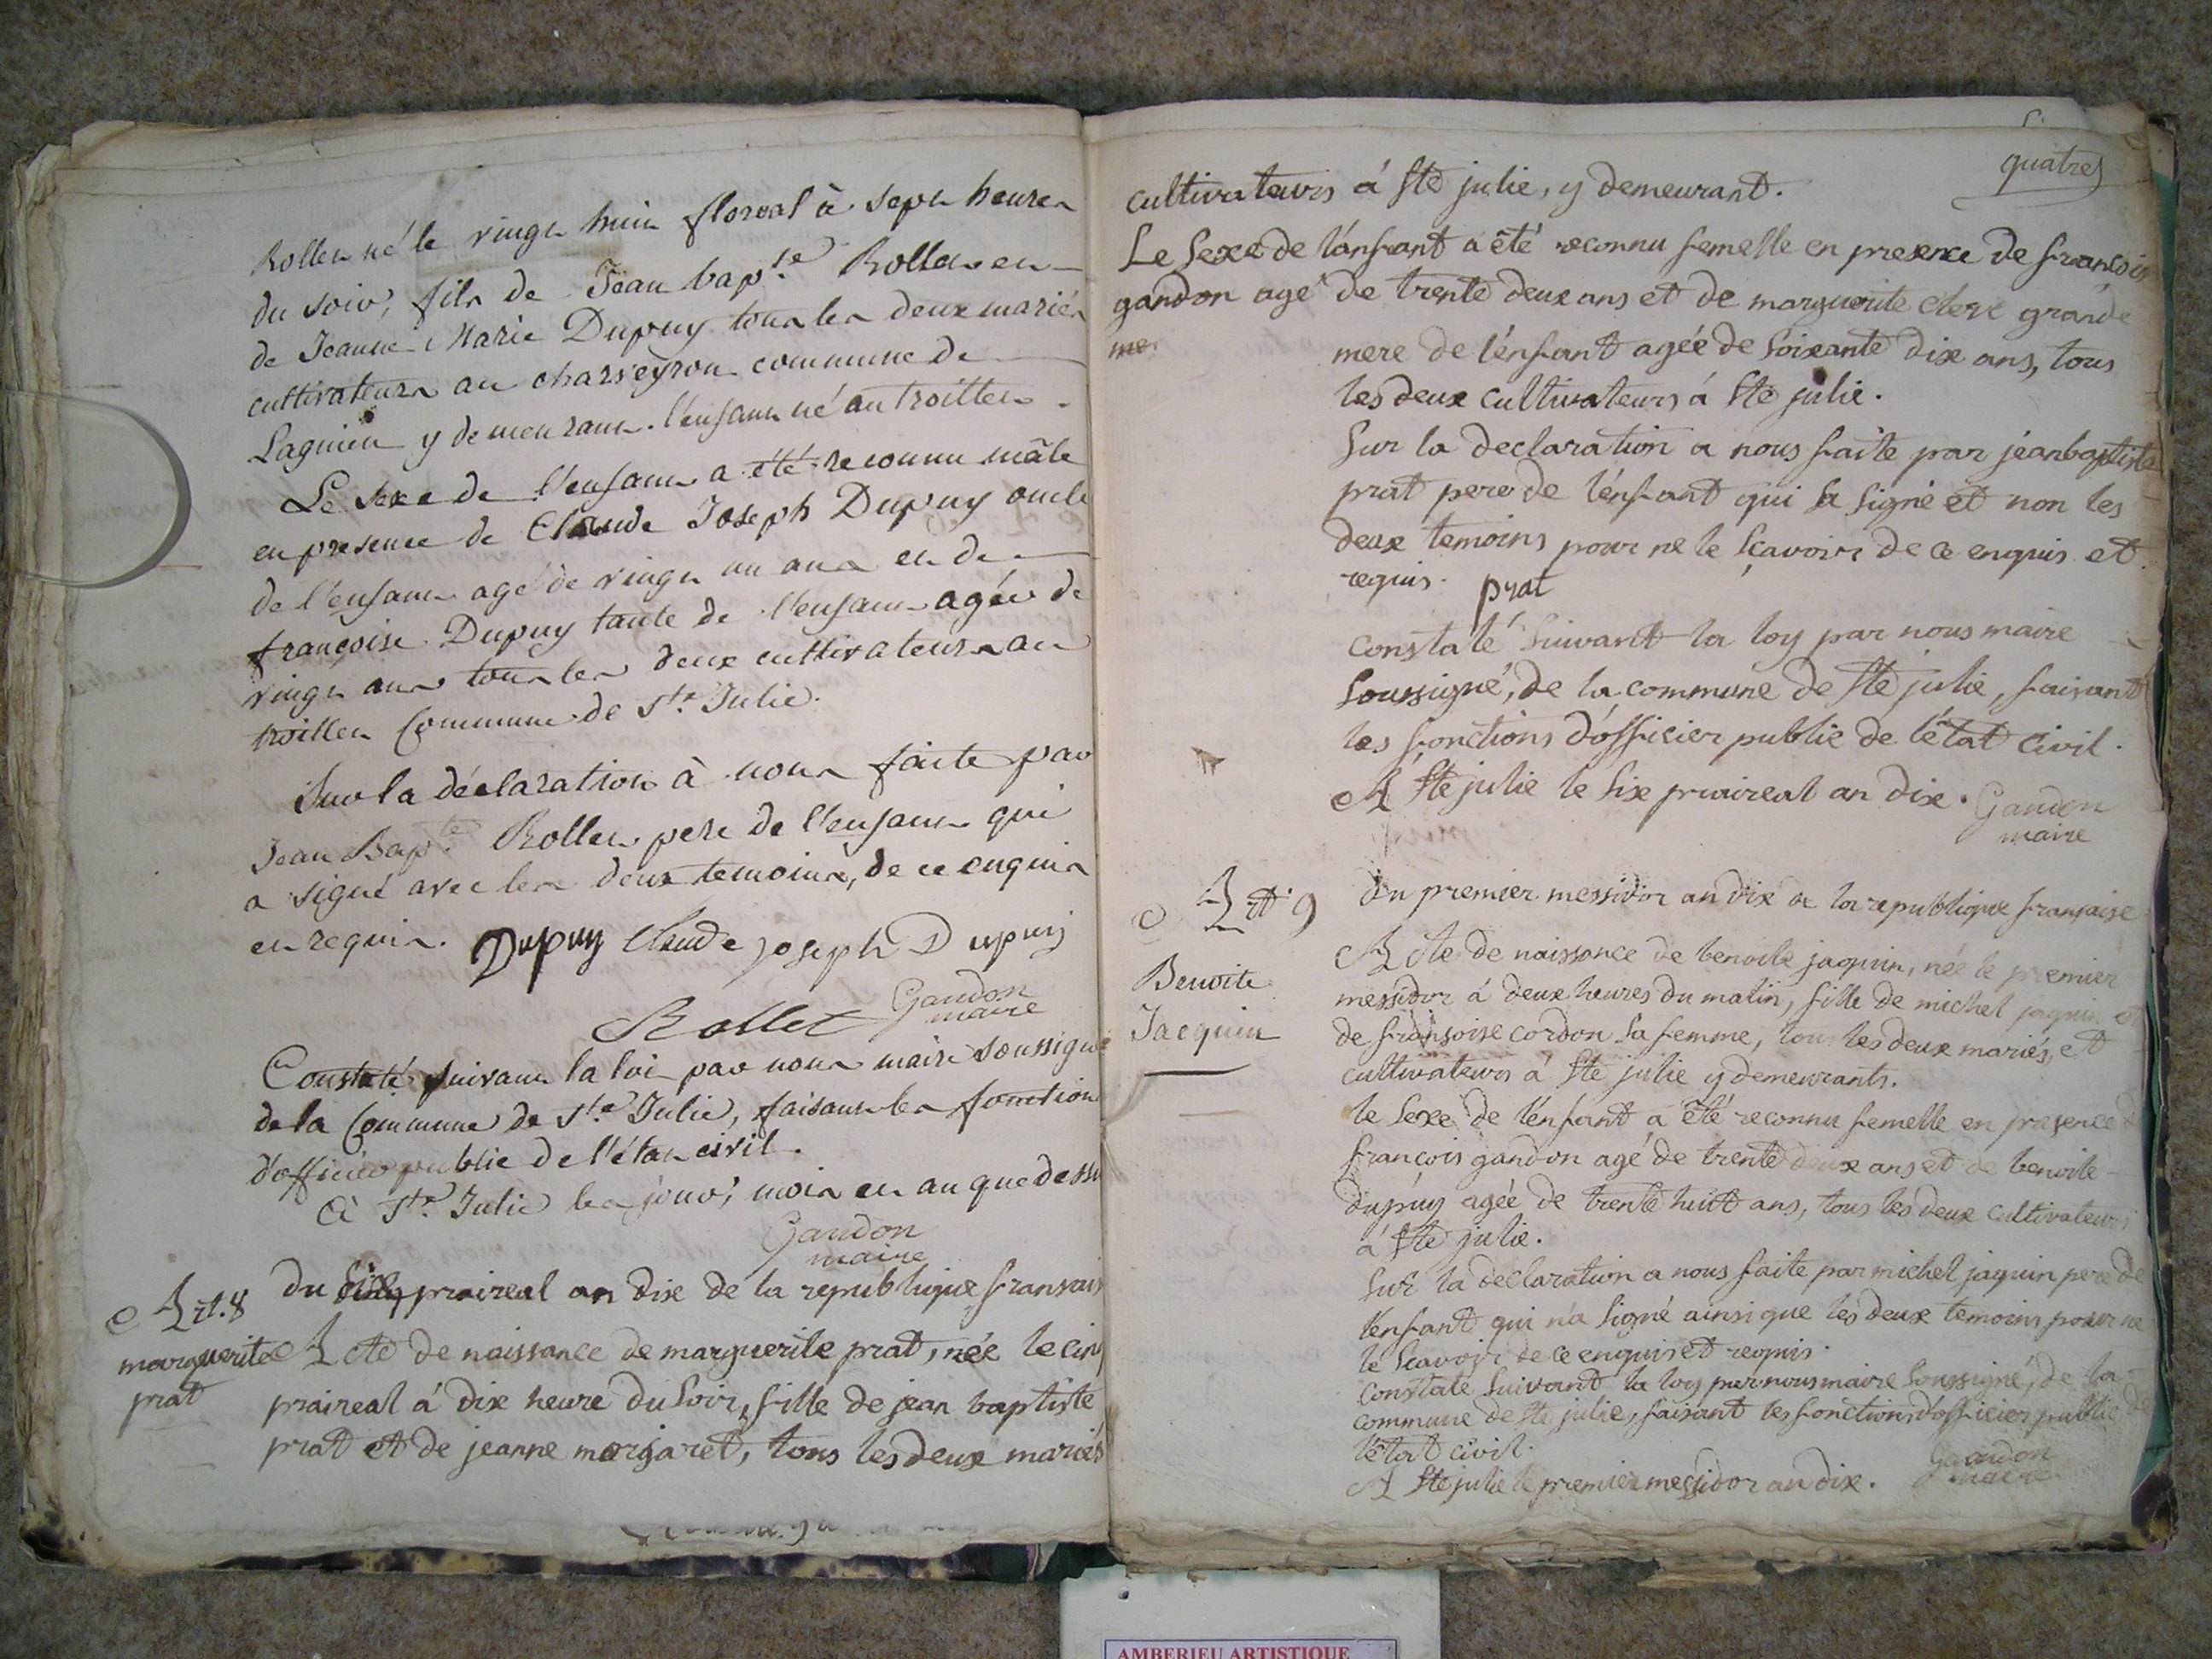 Rollet né le vingt huit floreal à sept heures
du soir, fils de Jean bapte. Rollet et
de Jeanne Marie Dupuy tous les deux mariés
cultivateurs au charveyron commune de
Lagnieu y demeurant. l'enfant né au troillet.
Le sexe de l'enfant a été reconnu mâle
en presence de Claude Joseph Dupuy oncle
de l'enfant agé de vingt un ans et de
françoise Dupuy tante de l'enfant agée de
vingt ans tous les deux cultivateurs au
troillet Commune de Ste. Julie.
Sur la déclaration à nous faite par
Jean Bapte. Rollet pere de l'enfant qui
a signé avec les deux temoins, de ce enquis
et requis. Dupuy Claude joseph Dupuy
Rollet Gandon
maire
Constaté suivant la loi par nous maire soussigné
de la Commune de Ste. Julie, faisant les fonction
d'officier public de l'état civil.
à Ste. Julie les jour, mois et an que dessu
Gandon
maire
Art. 8
marguerite
prat
du praireal an dix de la republique fransais
Acte de naissance de marguerite prat, née le cinq
praireal á dix heure du soir, fille de jean baptiste
prat et de jeanne margaret, tous les deux mariés
quatre
cultivateurs á Ste julie, y demeurant.
Le sexe de l'anfant a été reconnu femelle en presence de françois
gandon agé de trente deux ans et de marguerite clere grande
me
mere de l'énfant agéé de soixante dix ans, tous
les deux cultivateurs á Ste julie.
Sur la declaration a nous faite par jean baptiste
prat pere de l'énfant qui la signé et non les
deux temoins pour ne le sçavoir de ce enquis et
requis. prat
constaté suivant la loy par nous maire
soussigné, de la commune de Ste julie, faisant
les fonctions d'officier public de l'état civil.
A Ste julie le six praireal an dix. Gandon
maire
Art. 9
Benoite
Jacquin
Du premier messidor an dix de la republique française
Acte de naissance de benoite jaquin, née le premier
messidor á deux heures du matin, fille de michel jaquin et
de fransoise cordon sa femme, tous les deux mariés, et
cultivateurs á Ste julie y demeurants.
le sexe de l'énfant a été reconnu femelle en presence de
françois gandon agé de trente deux ans et de benoite
dupuy agée de trente huit ans, tous les deux cultivateurs
á Ste julie.
Sur la declaration a nous faite par michel jaquin pere de
l'enfant qui n'a signé ainsi que les deux temoins pour ne
le sçavoir de ce enquis et requis.
constate suivant la loy par nous maire soussigné, de la
commune de Ste julie, faisant les fonctions d'officier public de
l'état civil.
A Ste julie le premier messidor an dix. Gandon
maire
AMBERIEU ARTISTIQUE